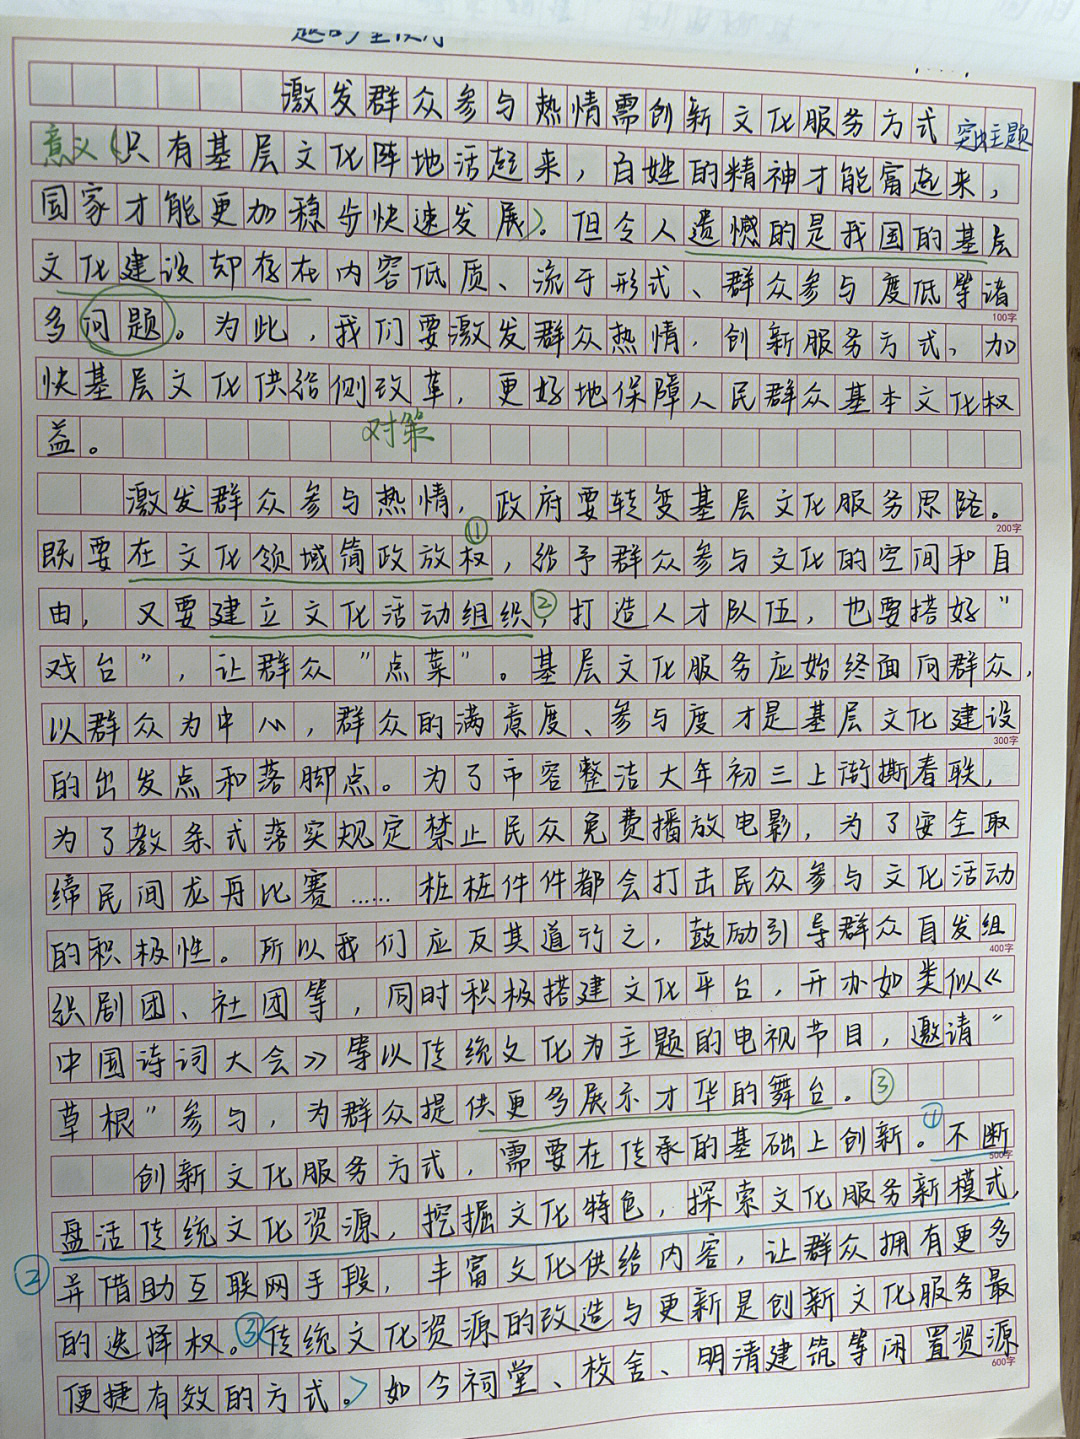 激发群众参与热情需创新文化服务方式 突出主题
意义(只有基层文化阵地活起来，百姓的精神才能富起来，
国家才能更加稳步快速发展)。但令人遗憾的是我国的基层
文化建设却存在内容低质、流于形式、群众参与度低等诸
100字
多问题。为此，我们要激发群众热情，创新服务方式、加
快基层文化供给侧改革，更好地保障人民群众基本文化权
益。 对策
激发群众参与热情，政府要转变基层文化服务思路。
200字
既要在文化领域简政放权①，给予群众参与文化的空间和自
由，又要建立文化活动组织②，打造人才队伍，也要搭好“
戏台”，让群众“点菜”。基层文化服务应始终面向群众，
以群众为中心，群众的满意度、参与度才是基层文化建设
300字
的出发点和落脚点。为了市容整洁大年初三上街撕春联，
为了教条式落实规定禁止民众免费播放电影，为了安全取
缔民间龙舟比赛……桩桩件件都会打击民众参与文化活动
的积极性。所以我们应反其道行之，鼓励引导群众自发组
400字
织剧团、社团等，同时积极搭建文化平台，开办如类似《
中国诗词大会》等以传统文化为主题的电视节目，邀请“
草根”参与，为群众提供更多展示才华的舞台。③
创新文化服务方式，需要在传承的基础上创新。①不断
500字
盘活传统文化资源，挖掘文化特色，探索文化服务新模式，
②并借助互联网手段，丰富文化供给内容，让群众拥有更多
的选择权。③<传统文化资源的改造与更新是创新文化服务最
便捷有效的方式。>如今祠堂、校舍、明清建筑等闲置资源
600字